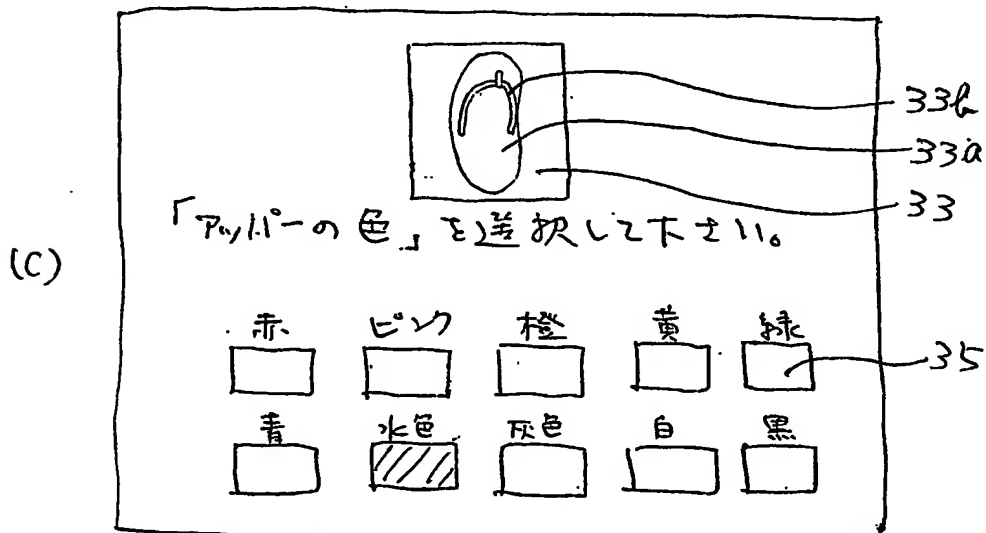 33b
33a
33
「アッパーの色」を選択して下さい。
(C)
赤 ピンク 橙 黄 緑
35
青 水色 灰色 白 黒